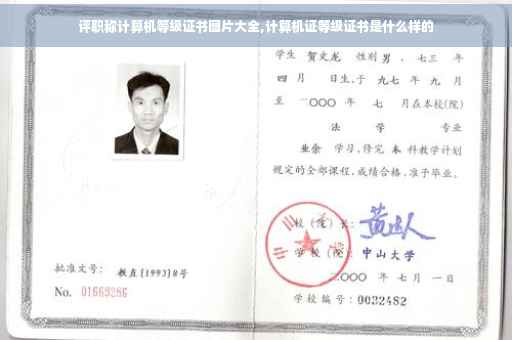 评职称计算机等级证书图片大全,计算机证等级证书是什么样的
学生 贺文龙 性别 男 、七三 年
四 月 日生,于 九七 年 九 月
至 二〇〇〇 年 七 月在本校(院)
法 学 专业
业余 学习,修完 本 科教学计划
规定的全部课程,成绩合格,准予毕业。
校(院)长:
学校(院): 中山大学
二〇〇〇 年 七 月 一 日
学校编号: 0032482
批准文号: 教直[1993]8号
No. 01669286